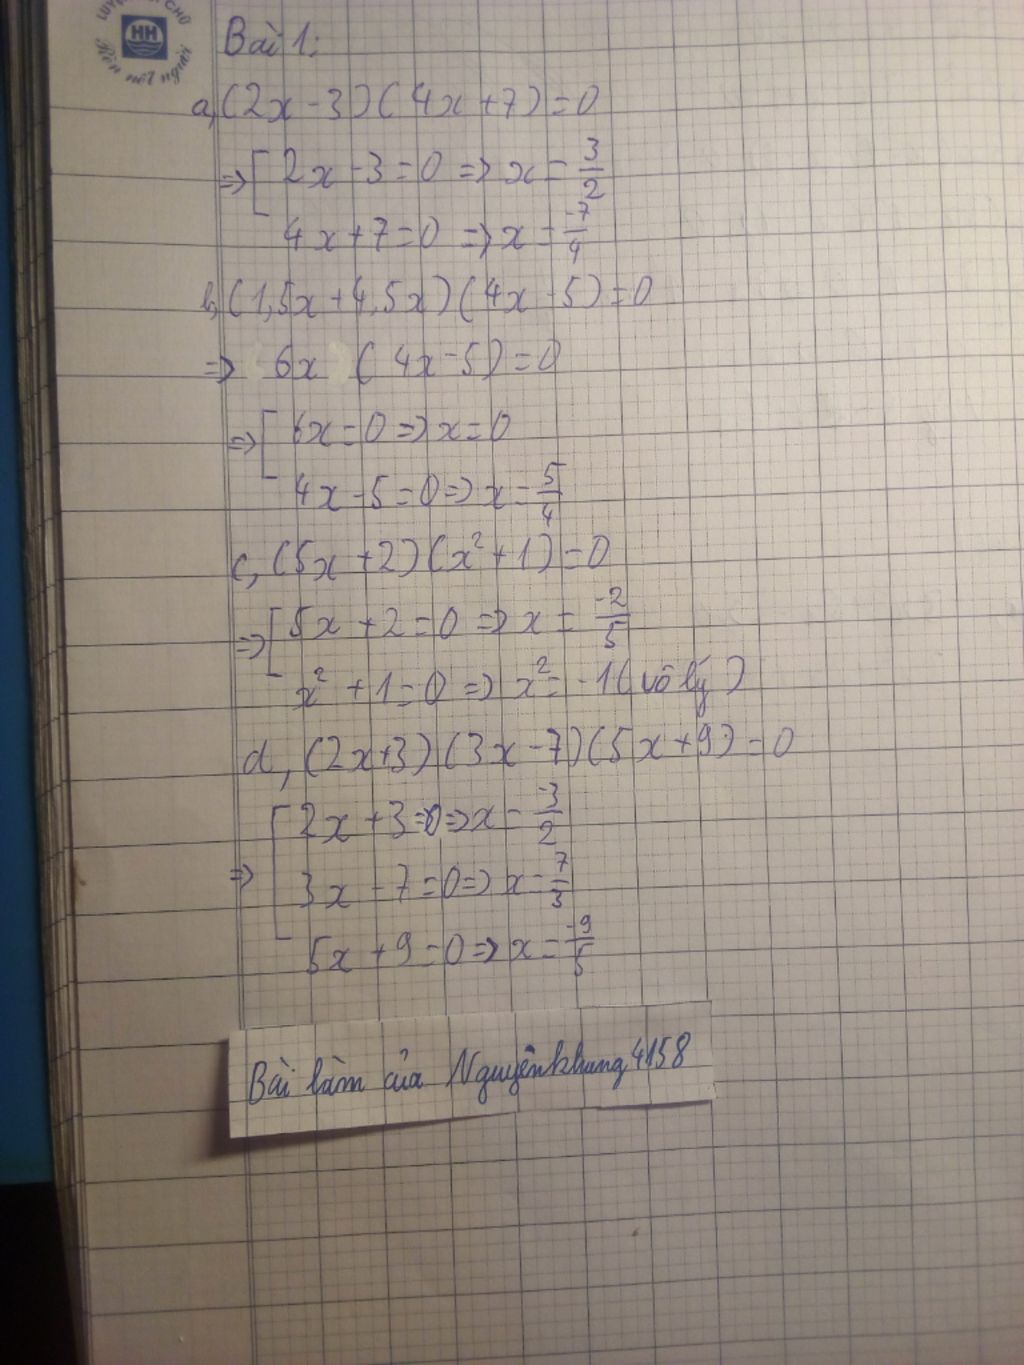 LUYỆN CHỮ
HH
Rèn nết người
Bài 1:
a, (2x - 3)(4x + 7) = 0
=> [ 2x - 3 = 0 => x = 3/2
4x + 7 = 0 => x = -7/4
b, (1,5x + 4,5x)(4x - 5) = 0
=> 6x (4x - 5) = 0
=> [ 6x = 0 => x = 0
4x - 5 = 0 => x = 5/4
c, (5x + 2)(x² + 1) = 0
=> [ 5x + 2 = 0 => x = -2/5
x² + 1 = 0 => x² = -1 (vô lý)
d, (2x + 3)(3x - 7)(5x + 9) = 0
=> [ 2x + 3 = 0 => x = -3/2
3x - 7 = 0 => x = 7/3
5x + 9 = 0 => x = -9/5
Bài làm của Nguyênkhung4158